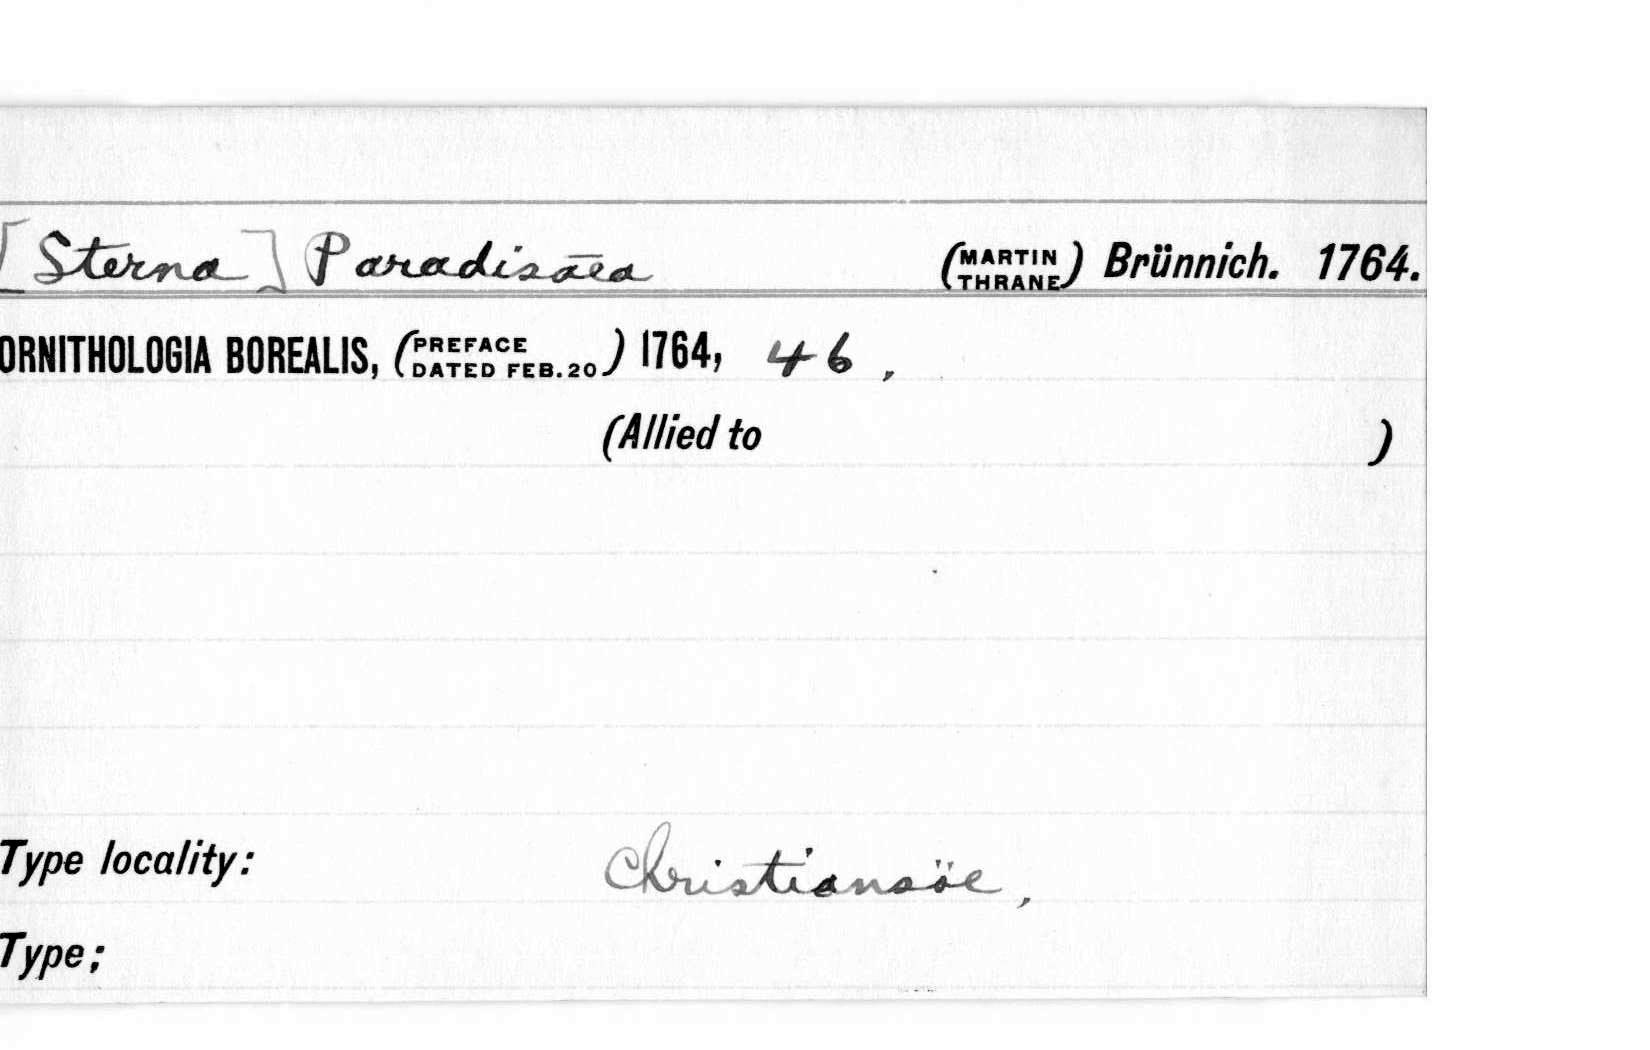 [Sterna] Paradisāea (MARTIN THRANE) Brünnich. 1764.
ORNITHOLOGIA BOREALIS, (PREFACE DATED FEB.20) 1764, 46,
(Allied to )
Type locality: Christiansöe,
Type;